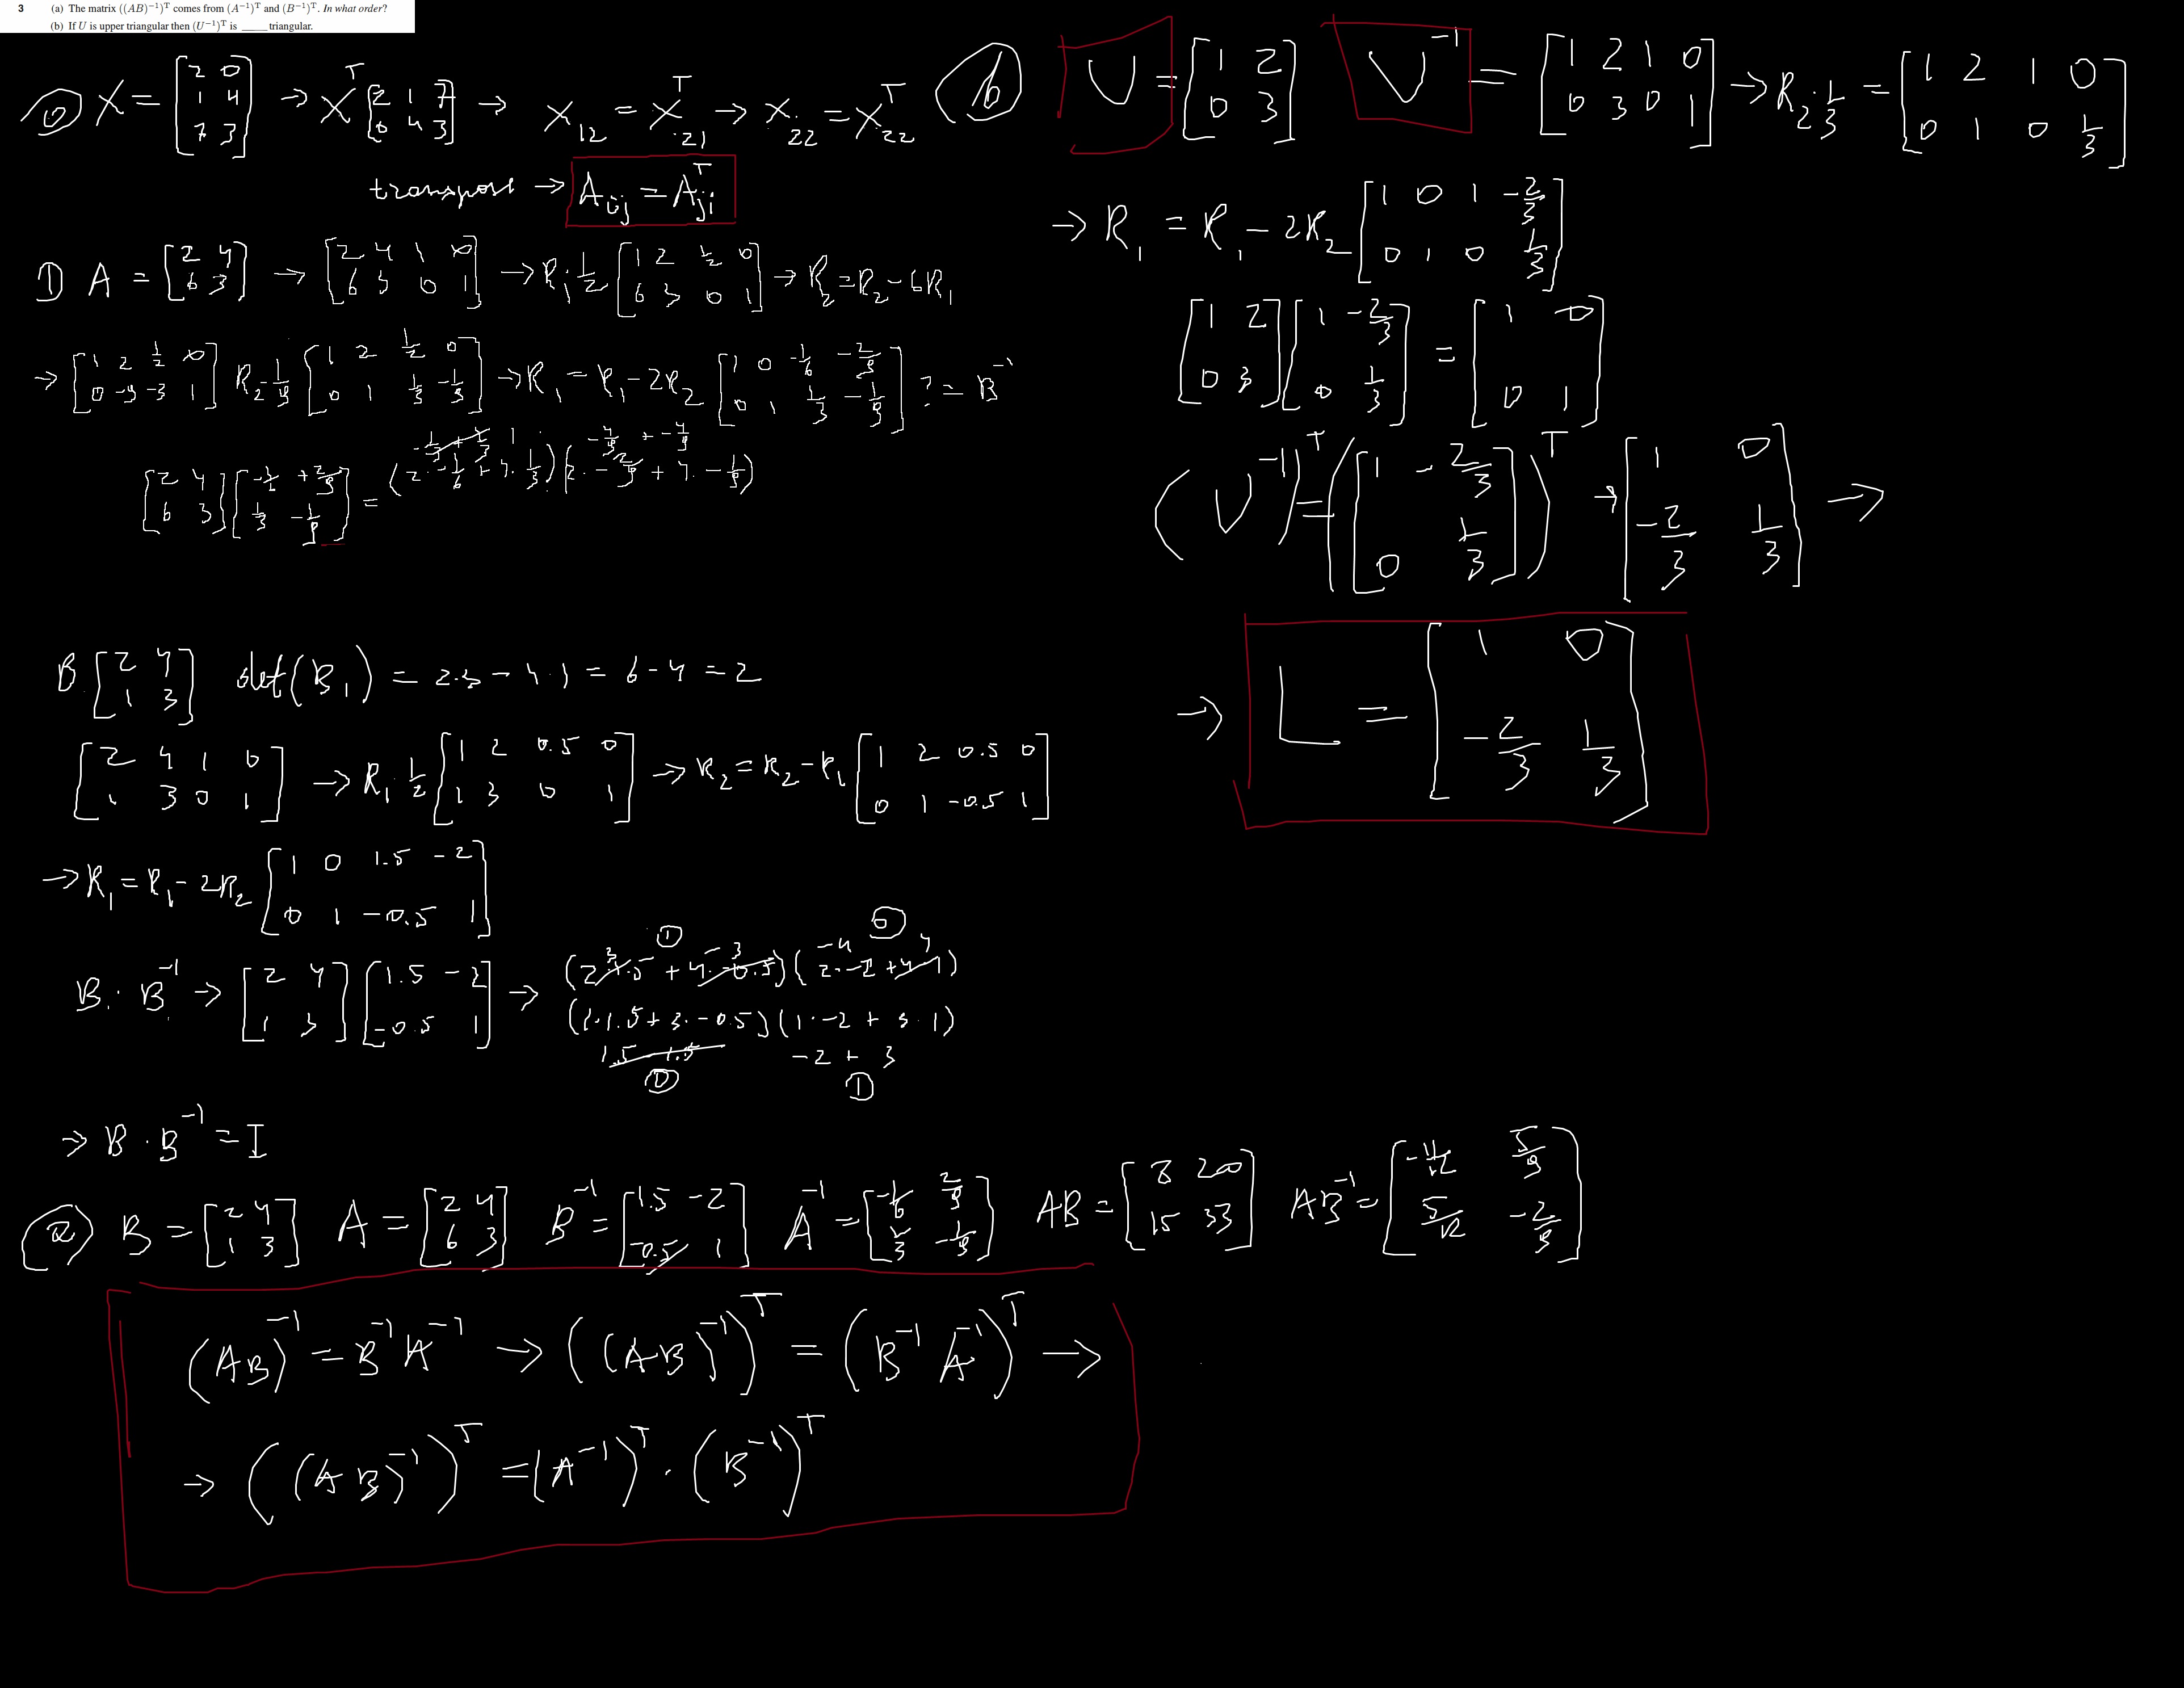 3 (a) The matrix ((AB)⁻¹)ᵀ comes from (A⁻¹)ᵀ and (B⁻¹)ᵀ. In what order?
(b) If U is upper triangular then (U⁻¹)ᵀ is _____ triangular.
⓪ X = [2 0; 1 4; 7 3] → Xᵀ [2 1 7; 0 4 3] → X₁₂ = Xᵀ₂₁ → X₂₂ = Xᵀ₂₂
transpose → A_ij = Aᵀ_ji
1) A = [2 4; 6 3] → [2 4 1 0; 6 3 0 1] → R₁·1/2 [1 2 1/2 0; 6 3 0 1] → R₂ = R₂ - 6R₁
→ [1 2 1/2 0; 0 -9 -3 1] R₂·-1/9 [1 2 1/2 0; 0 1 1/3 -1/9] → R₁ = R₁ - 2R₂ [1 0 -1/6 -2/9; 0 1 1/3 -1/9] ? = B⁻¹
[2 4; 6 3] [-1/6 +2/9; 1/3 -1/9] = (2·-1/6 + 4·1/3) (2·-2/9 + 4·-1/9)
B [2 4; 1 3] det(B₁) = 2·3 - 4·1 = 6 - 4 = 2
[2 4 1 0; 1 3 0 1] → R₁·1/2 [1 2 0.5 0; 1 3 0 1] → R₂ = R₂ - R₁ [1 2 0.5 0; 0 1 -0.5 1]
→ R₁ = R₁ - 2R₂ [1 0 1.5 -2; 0 1 -0.5 1]
B · B⁻¹ → [2 4; 1 3] [1.5 -2; -0.5 1] → (2·1.5 + 4·-0.5) (2·-2 + 4·1)
(1·1.5 + 3·-0.5) (1·-2 + 3·1)
1.5 - 1.5 -2 + 3
0 1
→ B · B⁻¹ = I
② B = [2 4; 1 3] A = [2 4; 6 3] B⁻¹ = [1.5 -2; -0.5 1] A⁻¹ = [-1/6 2/9; 1/3 -1/9] AB = [8 20; 15 33] AB⁻¹ = [-11/12 5/9; 5/12 -2/9]
(AB)⁻¹ = B⁻¹A⁻¹ → ((AB)⁻¹)ᵀ = (B⁻¹A⁻¹)ᵀ →
→ ((AB)⁻¹)ᵀ = (A⁻¹)ᵀ · (B⁻¹)ᵀ
ⓑ U = [1 2; 0 3] U⁻¹ = [1 2 1 0; 0 3 0 1] → R₂·1/3 = [1 2 1 0; 0 1 0 1/3]
→ R₁ = R₁ - 2R₂ [1 0 1 -2/3; 0 1 0 1/3]
[1 2; 0 3] [1 -2/3; 0 1/3] = [1 0; 0 1]
(U⁻¹)ᵀ = ([1 -2/3; 0 1/3])ᵀ → [1 0; -2/3 1/3] →
→ L = [1 0; -2/3 1/3]